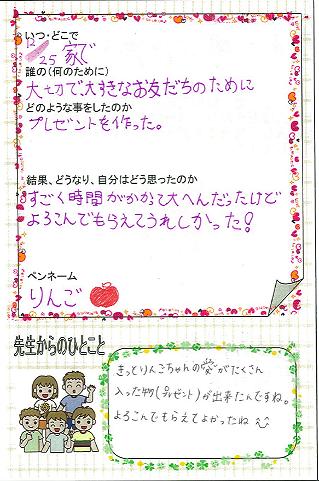 いつ・どこで
12/25 家で
誰の(何のために)
大切で大すきなお友だちのために
どのような事をしたのか
プレゼントを作った。
結果、どうなり、自分はどう思ったのか
すごく時間がかかって大へんだったけど
よろこんでもらえてうれしかった!
ペンネーム
りんご
先生からのひとこと
きっとりんごちゃんの がたくさん
入った物(プレゼント)が出来たんですね。
よろこんでもらえてよかったね